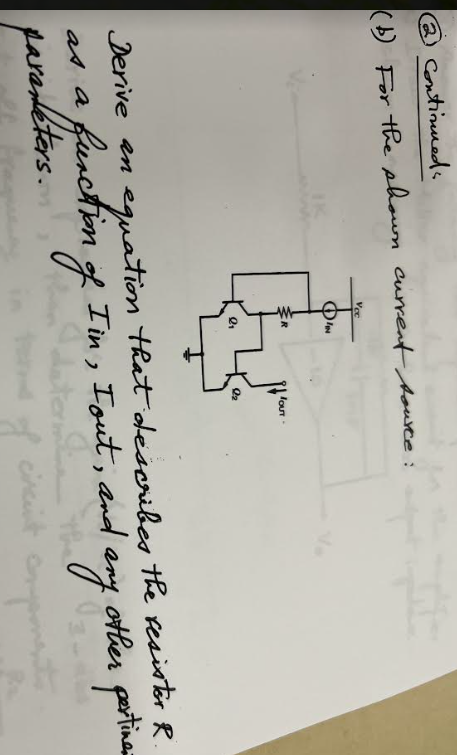 ② Continued:
(b) For the shown current source:
Vcc
IIN
R
IOUT
Q1
Q2
Derive an equation that describes the resistor R
as a function of Iin, Iout, and any other
parameters.